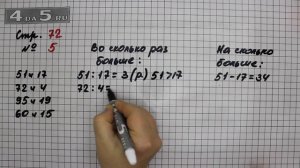 4DA5.RU
Стр. 72
№ 5
Во сколько раз больше:
На сколько больше:
51 и 17
72 и 4
95 и 19
60 и 15
51 : 17 = 3 (р.) 51>17
72 : 4=
51 - 17 = 34